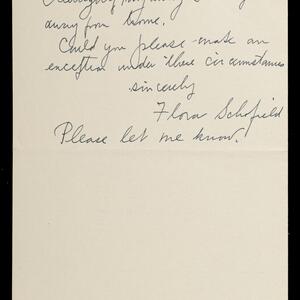 away from home.
Could you please make an
exception under these circumstances
sincerely
Flora Schofield
Please let me know.